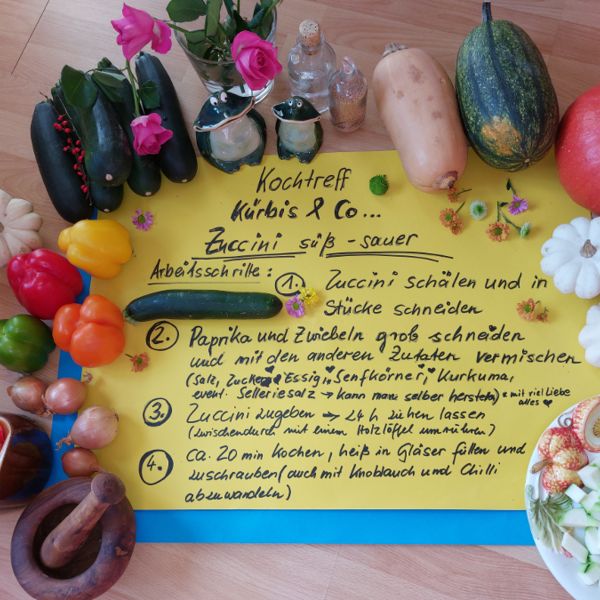 Kochtreff
Kürbis & Co...
Zuccini süß-sauer
Arbeitsschritte:
1. Zuccini schälen und in
Stücke schneiden
2. Paprika und Zwiebeln groß schneiden
und mit den anderen Zutaten vermischen
(Salz, Zucker, Essig, Senfkörner, Kurkuma,
event. Selleriesalz → kann man selber herstellen) * mit viel Liebe
alles ♥
3. Zuccini zugeben → 24 h ziehen lassen
(zwischendurch mit einem Holzlöffel umrühren?)
4. ca. 20 min kochen, heiß in Gläser füllen und
zuschrauben (auch mit Knoblauch und Chilli
abzuwandeln)